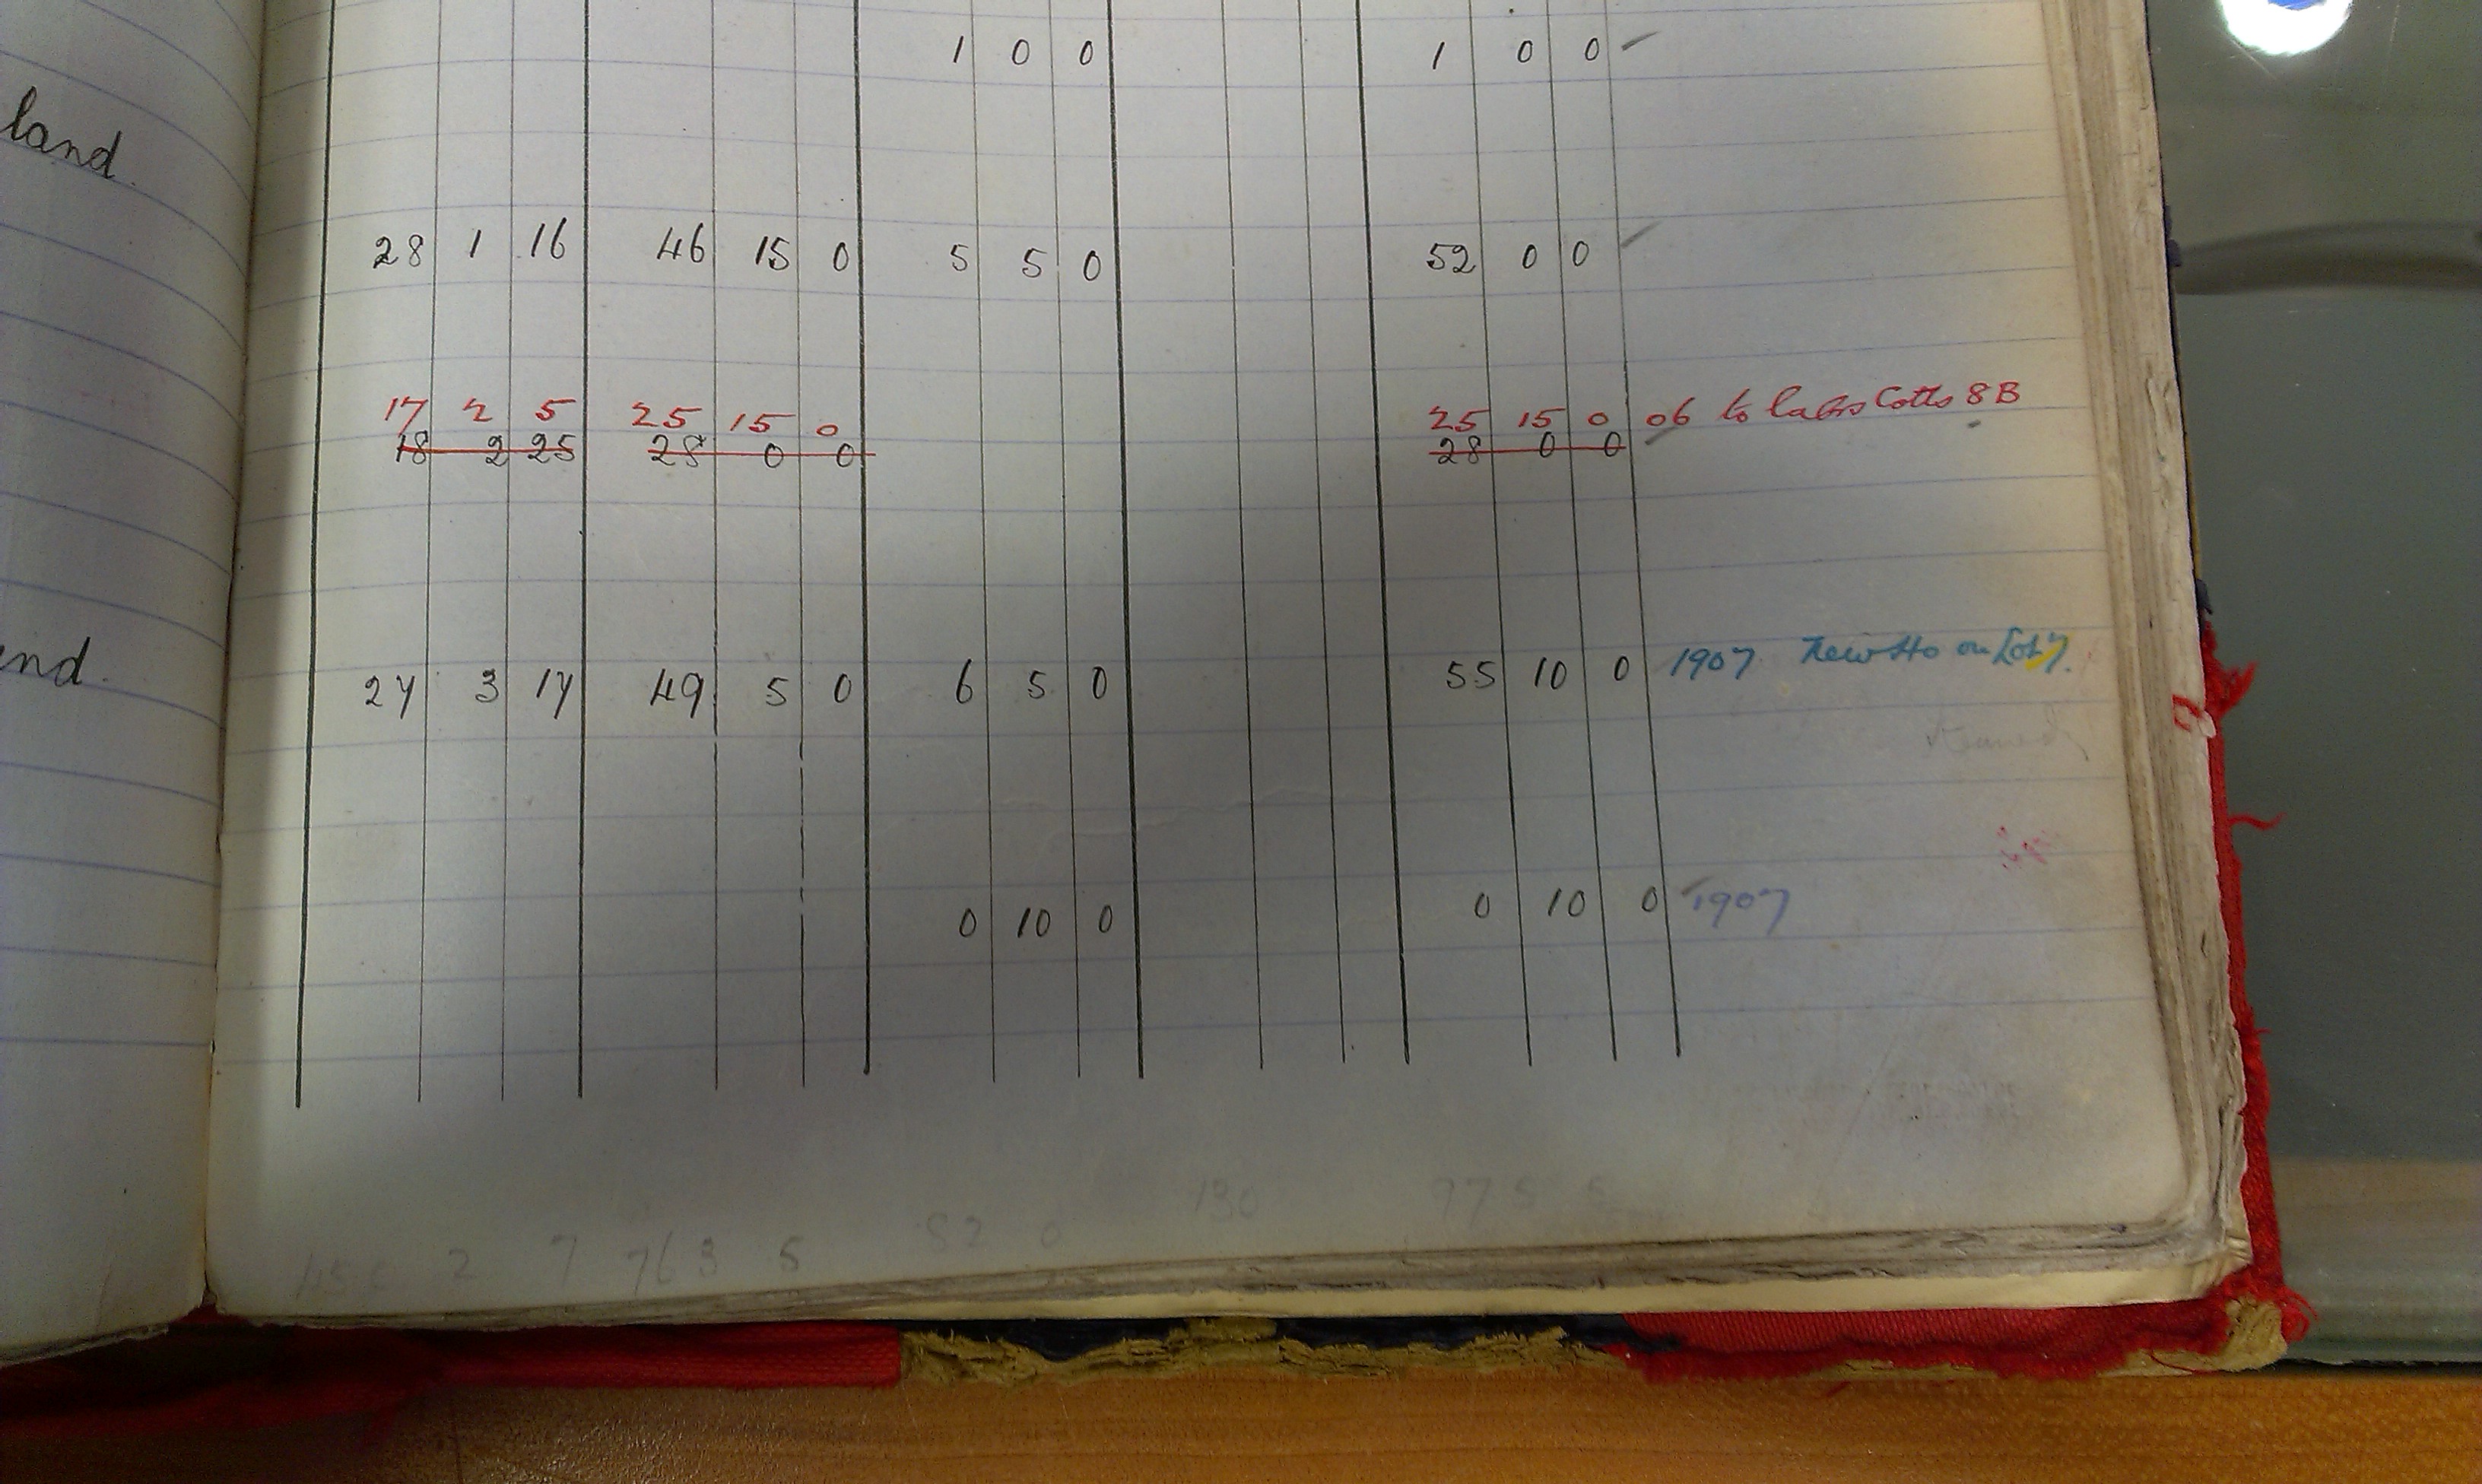 1 0 0 1 0 0
land.
28 1 16 46 15 0 5 5 0 52 0 0
17 2 5 25 15 0 25 15 0 06 to Labrs Cotts 8B
18 2 25 28 0 0 28 0 0
nd. 27 3 17 49 5 0 6 5 0 55 10 0 1907 New Ho on Lot 7.
0 10 0 0 10 0 1907
2 7 763 5 52 0 130 975 5